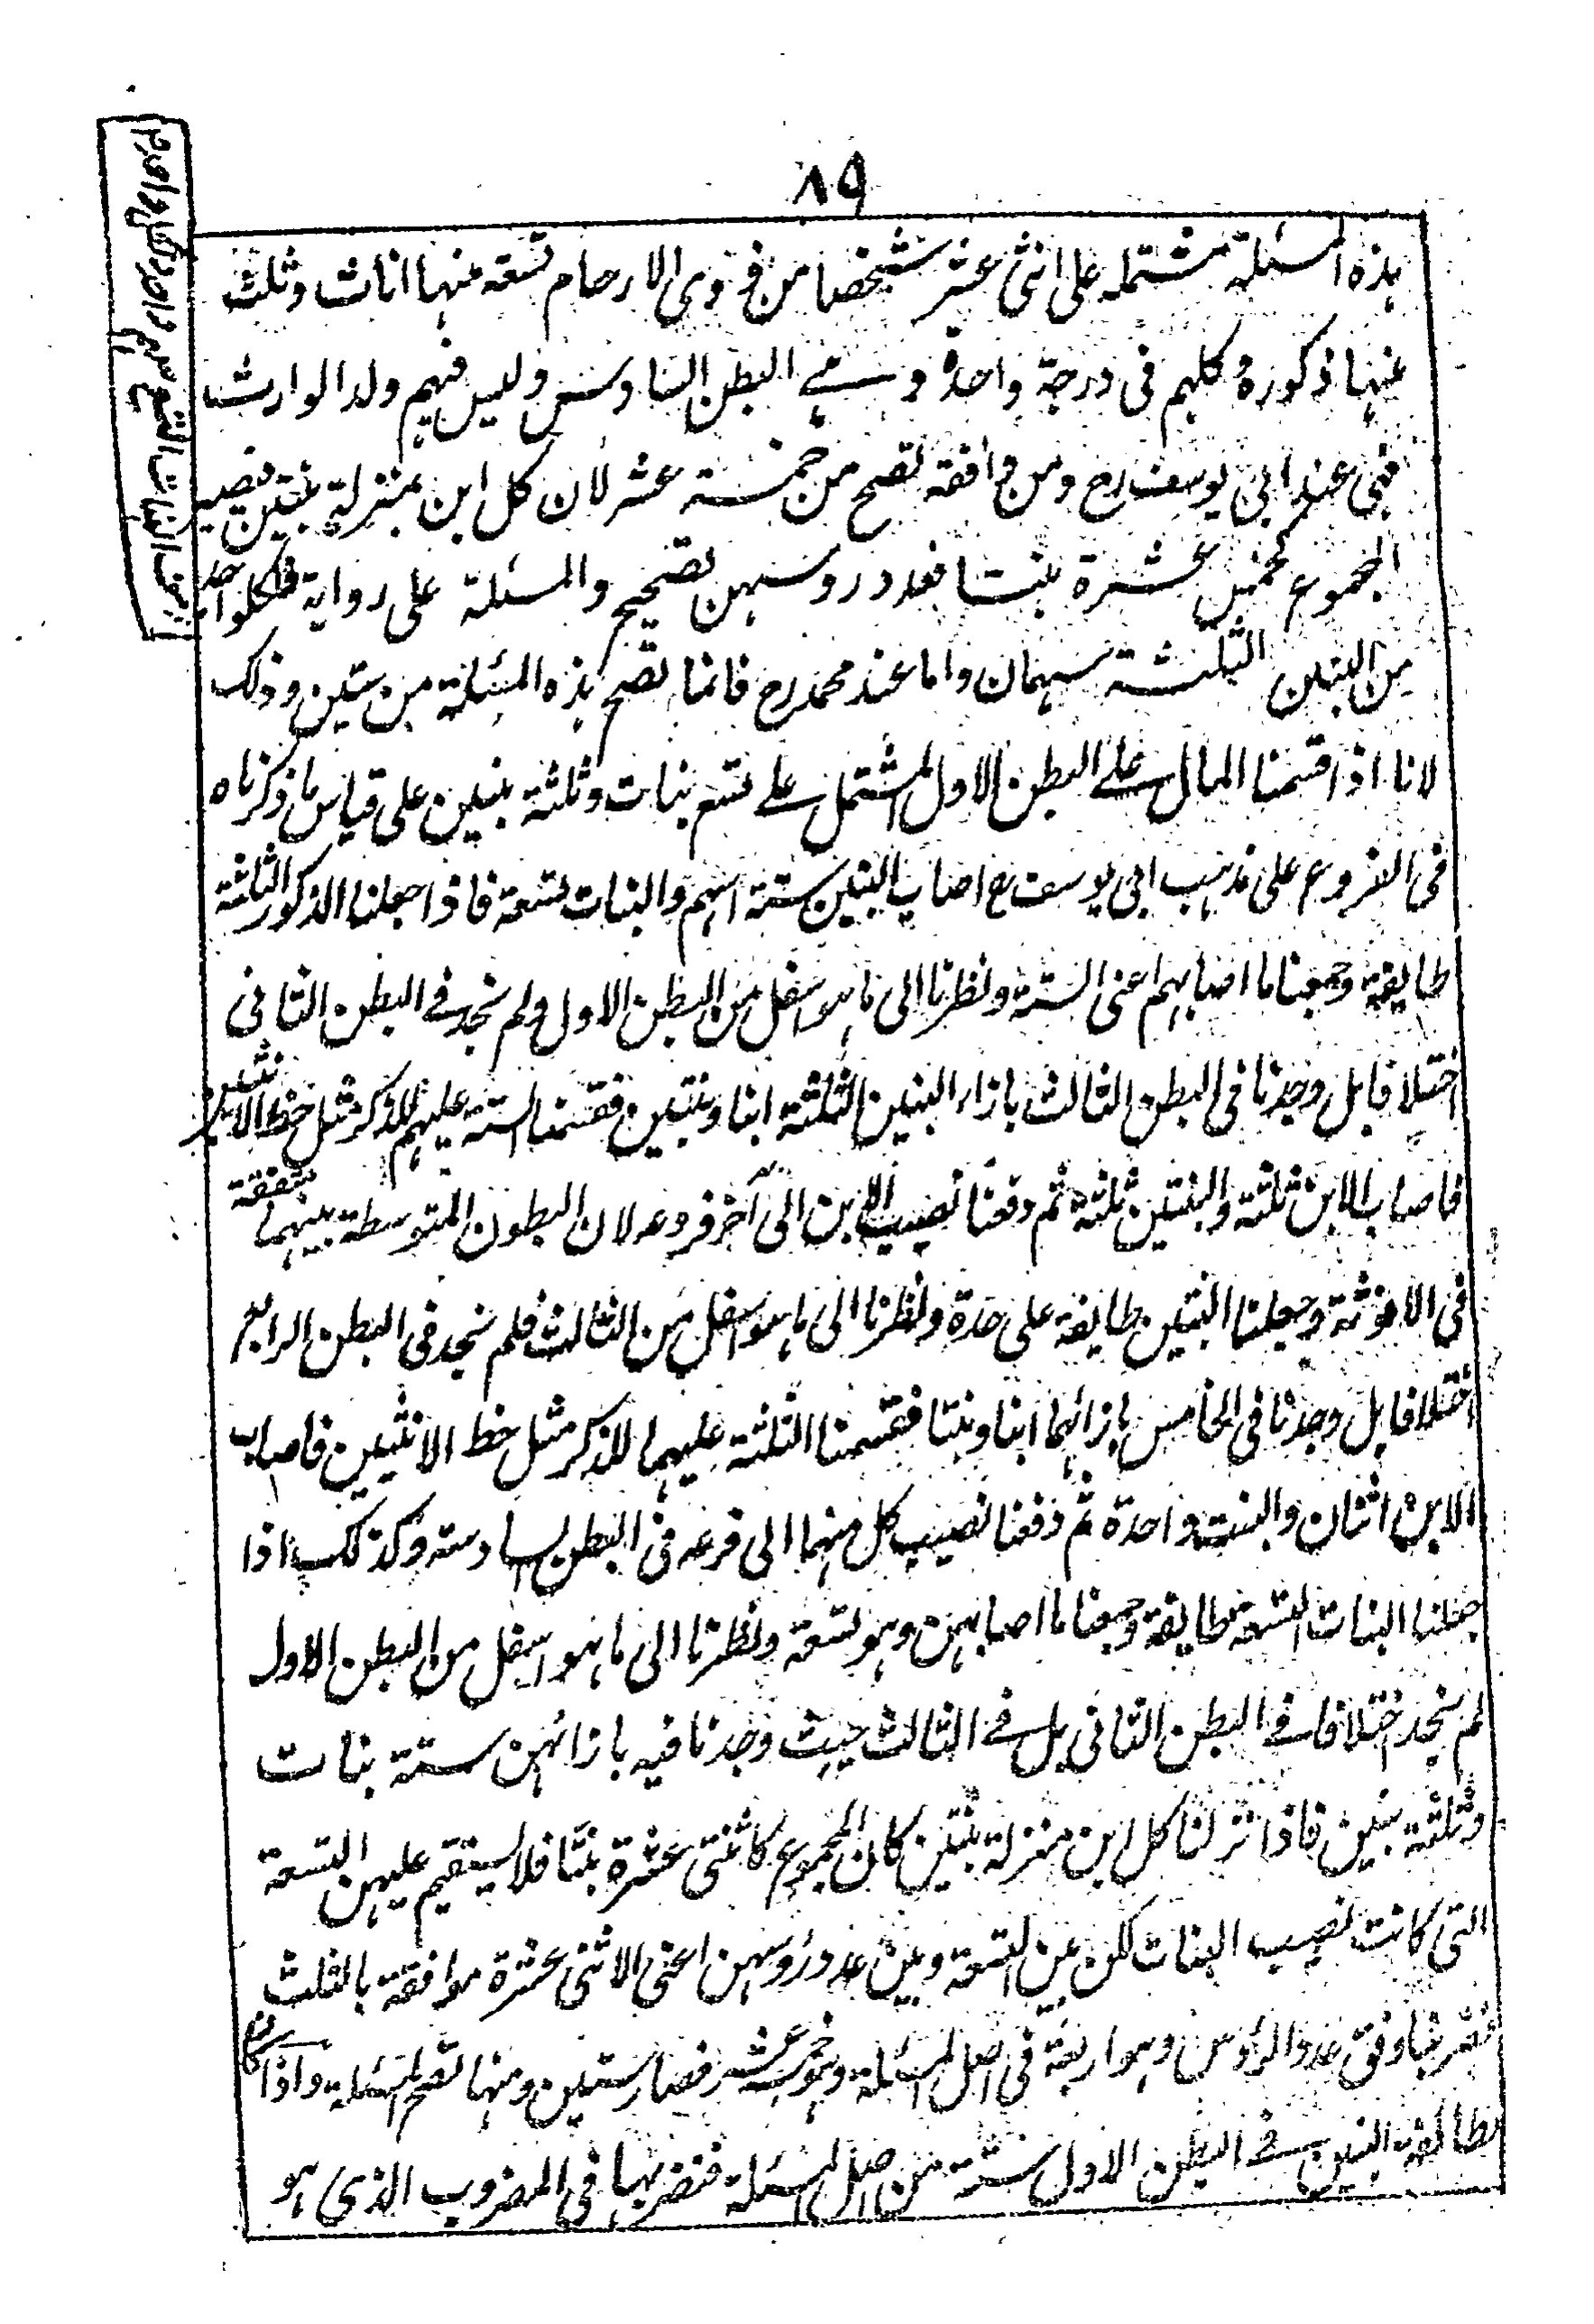 ٨٩
هذه المسئلة مشتملة على اثنى عشر شخصا من ذوى الارحام تسعة منها اناث وثلث
منها ذكورة وكلهم فى درجة واحدة وهى البطن السادس وليس فيهم ولد الوارث
فهى عند ابى يوسف رح ومن وافقه تصح من خمسة عشر لان كل ابن بمنزلة بنتين فيصير
المجموع كخمس عشرة بنتا فعدد روسهن تصحيح والمسئلة على رواية فلكل واحد
من البنين الثلثة سهمان واما عند محمد رح فانما تصح هذه المسئلة من ستين وذلك
لانا اذا قسمنا المال على البطن الاول المشتمل على تسع بنات وثلثة بنين على قياس ما ذكرناه
فى الفروع على مذهب ابى يوسف رح اصاب البنين ستة اسهم والبنات تسعة فاذا جعلنا الذكور الثلثة
طايفة وجمعنا ما اصابهم اعنى الستة ونظرنا الى ما هو اسفل من البطن الاول ولم نجد فى البطن الثانى
اختلافا بل وجدنا فى البطن الثالث بازاء البنين الثلثة ابنا وبنتين فقسمنا الستة عليهم للذكر مثل حظ الانثيين
فاصاب الابن ثلثة والبنتين ثلثة ثم دفعنا نصيب الابن الى آخر فروعه لان البطون المتوسطة بينهما متفقة
فى الانوثة وجعلنا البنتين طايفة على حدة ونظرنا الى ما هو اسفل من الثالث فلم نجد فى البطن الرابع
اختلافا بل وجدنا فى الخامس بازائهما ابنا وبنتا فقسمنا الثلثة عليهما للذكر مثل حظ الانثيين فاصاب
الابن اثنان والبنت واحدة ثم دفعنا نصيب كل منهما الى فرعه فى البطن السادسة وكذلك اذا
جعلنا البنات التسعة طايفة وجمعنا ما اصابهن وهو تسعة ونظرنا الى ما هو اسفل من البطن الاول
لم نجد اختلافا فى البطن الثانى بل فى الثالث حيث وجدنا فيه بازائهن ستة بنات
وثلثة بنين فاذا نزلنا كل ابن منزلة بنتين كان المجموع كاثنتى عشرة بنتا فلا يستقيم عليهن التسعة
التى كانت نصيب البنات لكن بين التسعة وبين عدد رؤسهن اعنى الاثنى عشرة موافقة بالثلث
فضربنا وفق عدد الرؤس وهو اربعة فى اصل المسئلة وهو خمسة عشر فصار ستين ومنها تصح المسئلة واذا كان
لطائفة البنين فى البطن الاول ستة من اصل المسئلة فنضربها فى المضروب الذى هو